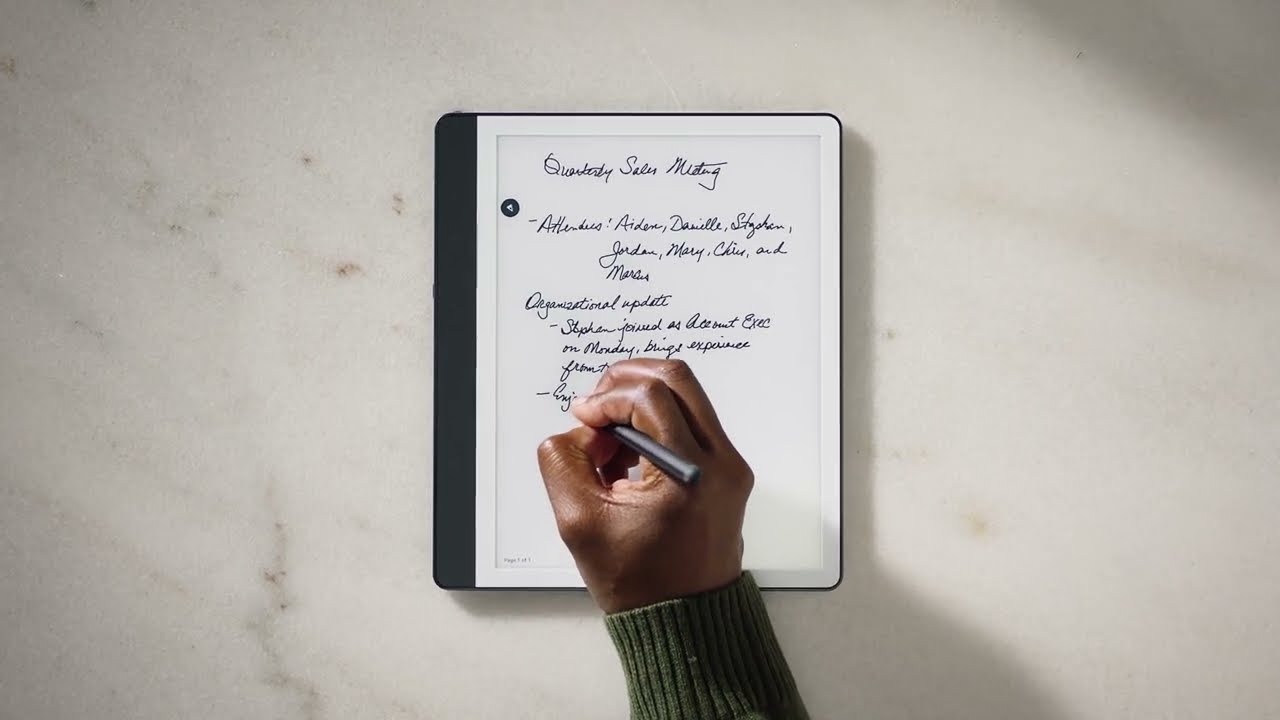 Quarterly Sales Meeting
- Attendees: Aiden, Danielle, Stephan,
Jordan, Mary, Chris, and
Marcus
Organizational update
- Stephan joined as Account Exec
on Monday, brings experience
from
- Enj
Page 1 of 1